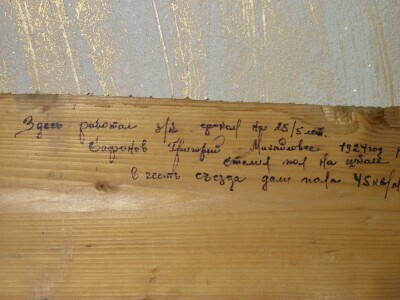 Здесь работал з/к сроком на 25/5 лет.
Сафонов Григорий Михайлович 1924 год р
стелил пол на цтасе
В честь съезда дали пола 45 кв/м